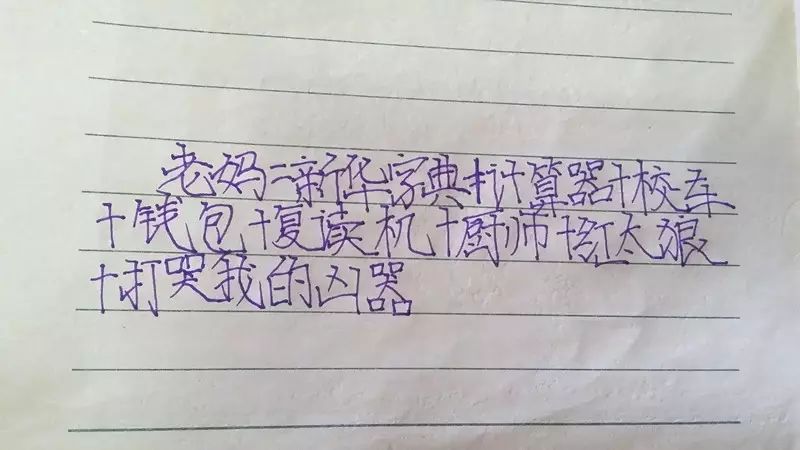 老妈=新华字典+计算器+校车
+钱包+复读机+厨师+红太狼
+打哭我的凶器